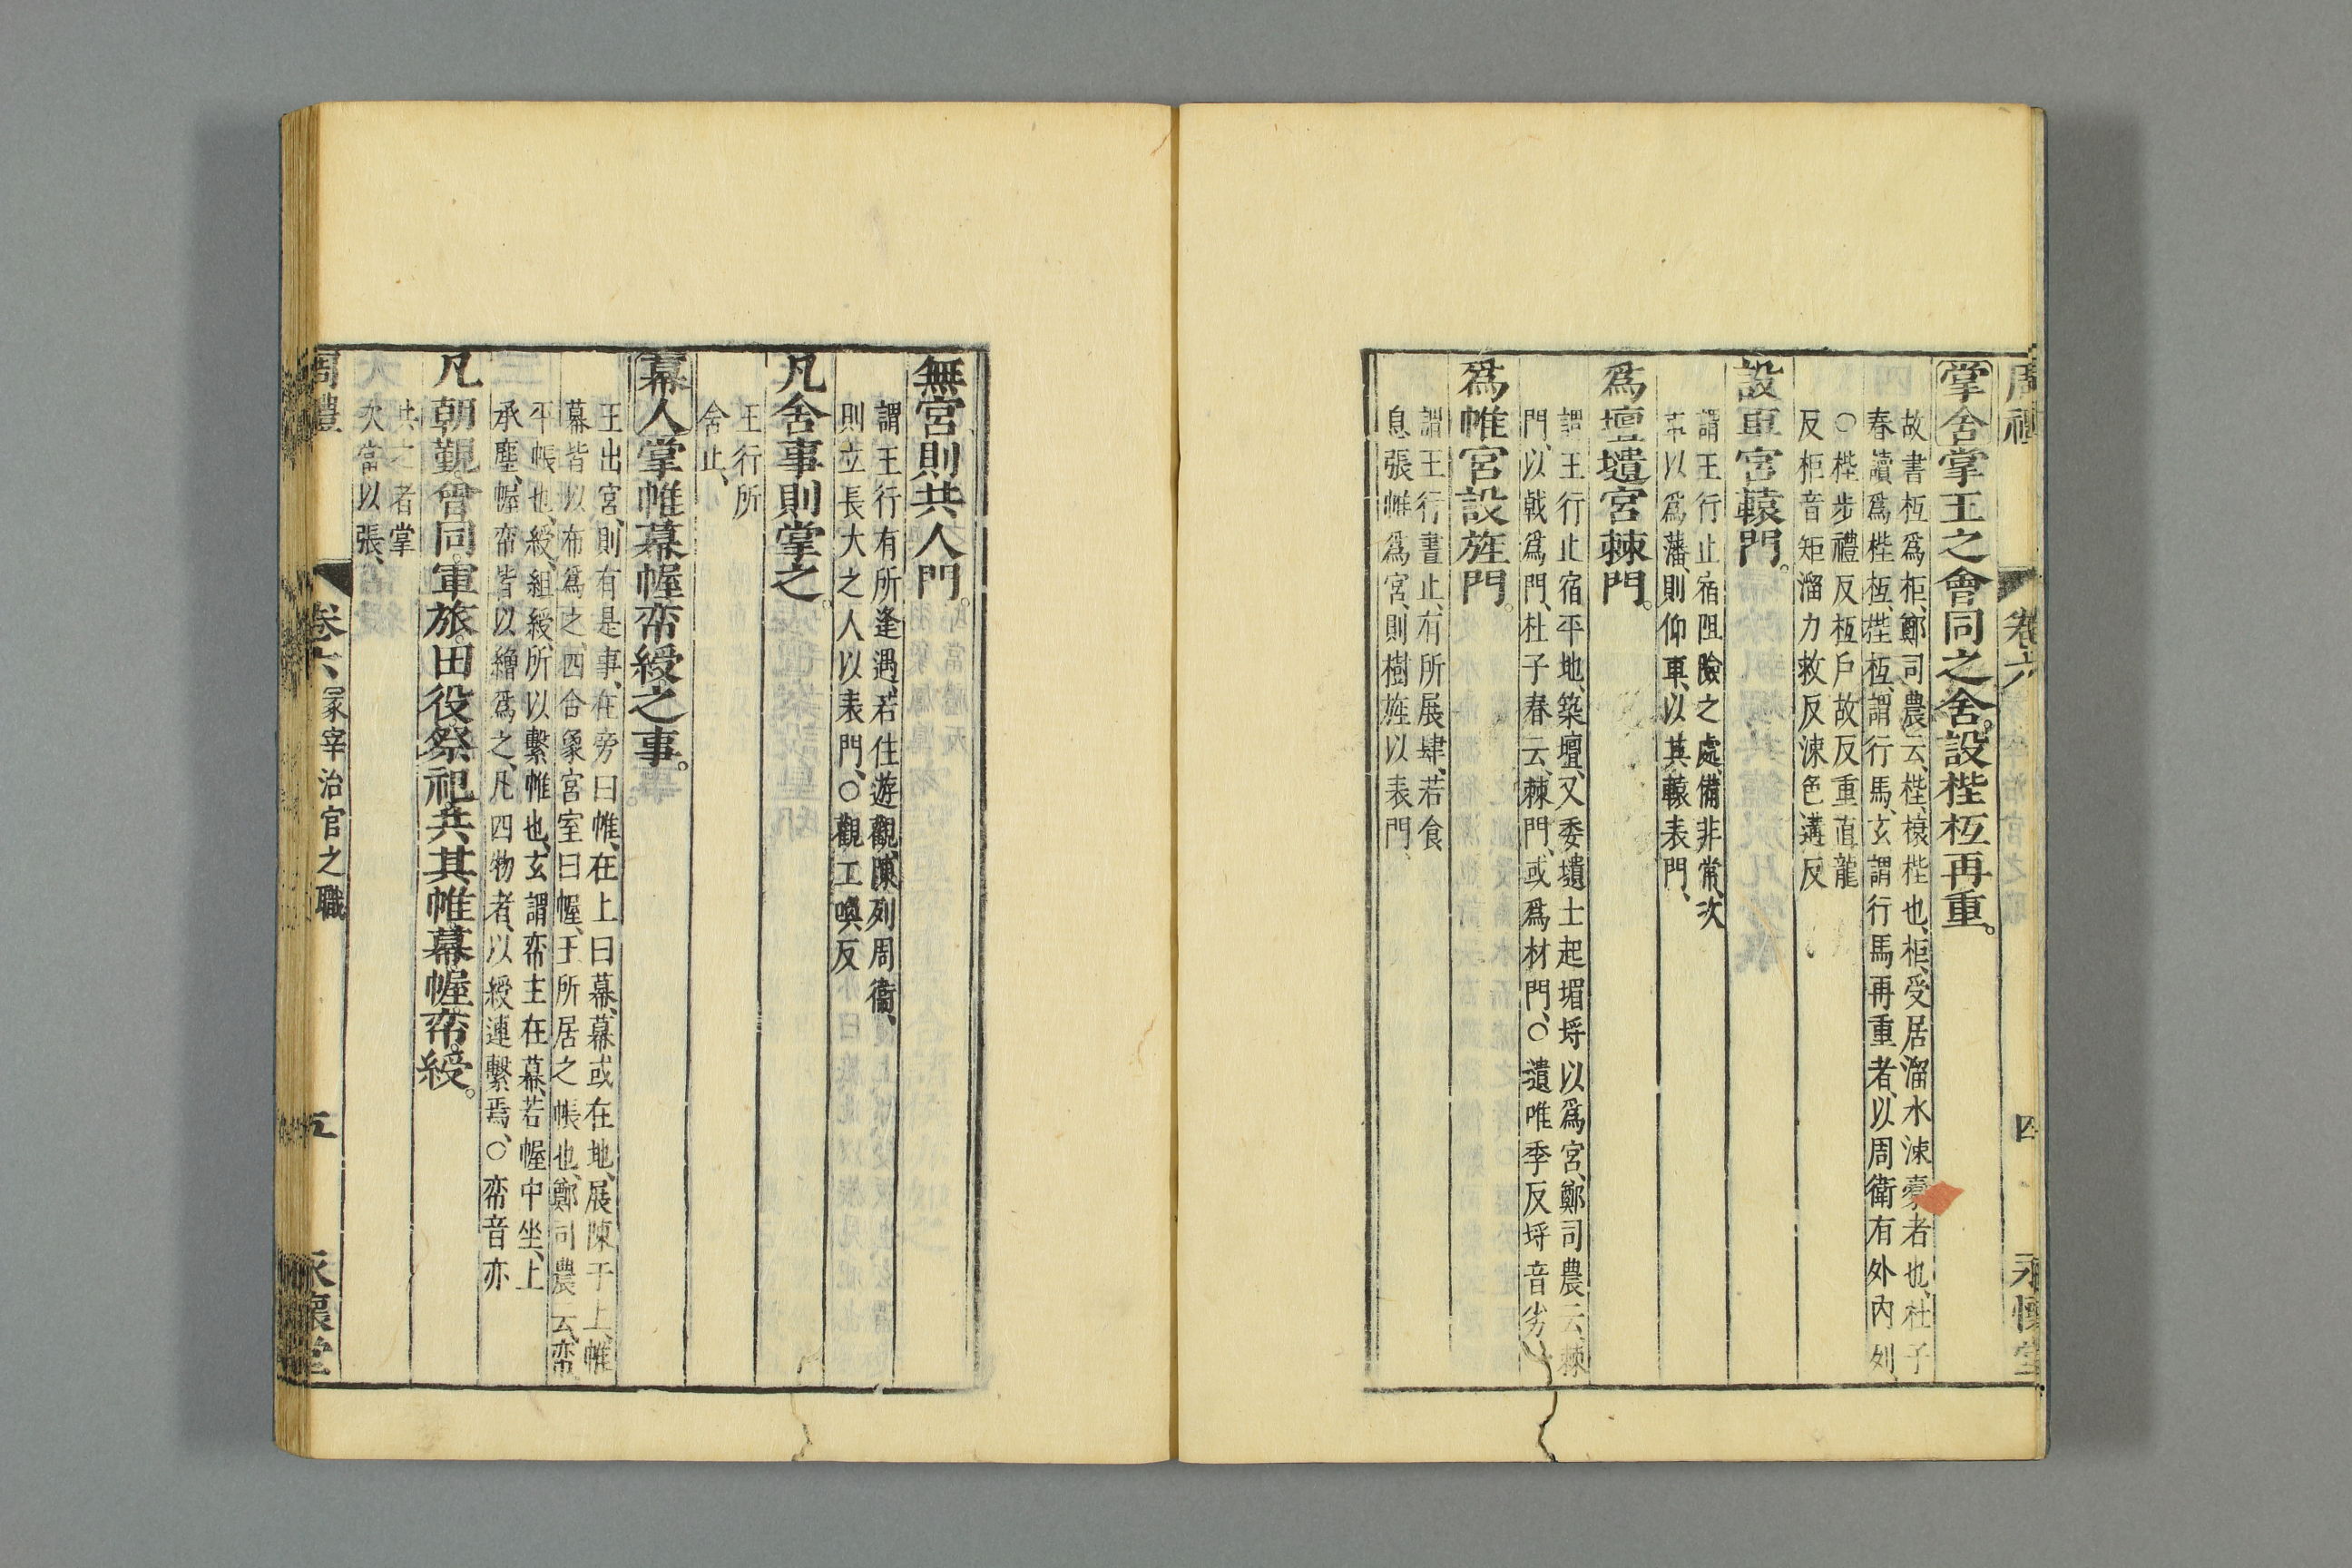 周禮 卷六 四 永懷堂
掌舍掌王之會同之舍。設梐枑再重。
故書枑爲柜、鄭司農云、梐、榱梐也、柜、受居溜水涑橐者也、杜子
春讀爲梐枑、梐枑、謂行馬、玄謂行馬再重者、以周衛有外內列、
○梐步禮反枑戶故反重直龍
反柜音矩溜力救反涑色遘反
設車宮轅門。
謂王行止宿阻險之處、備非常、次
車以爲藩、則仰車、以其轅表門、
爲壇壝宮棘門。
謂王行止宿平地、築壇、又委壝土起堳埓以爲宮、鄭司農云、棘
門、以戟爲門、杜子春云、棘門、或爲材門、○壝唯季反埓音劣
爲帷宮設旌門。
謂王行晝止、有所展肆、若食
息張帷爲宮、則樹旌以表門、
無宮則共人門。
謂王行有所逢遇、若住遊觀、陳列周衞、
則立長大之人以表門、○觀工喚反
凡舍事則掌之。
王行所
舍止、
幕人掌帷幕幄帟綬之事。
王出宮、則有是事、在旁曰帷、在上曰幕、幕或在地、展陳于上、帷
幕皆以布爲之、四合象宮室曰幄、王所居之帳也、鄭司農云、帟、
平帳也、綬、組綬、所以繫帷也、玄謂帟主在幕、若幄中坐、上
承塵、幄帟皆以繒爲之、凡四物者、以綬連繫焉、○帟音亦
凡朝覲。會同。軍旅。田役。祭祀。共其帷。幕。幄。帟。綬。
共之者掌
次當以張、
周禮 卷六 冢宰治官之職 五 永懷堂